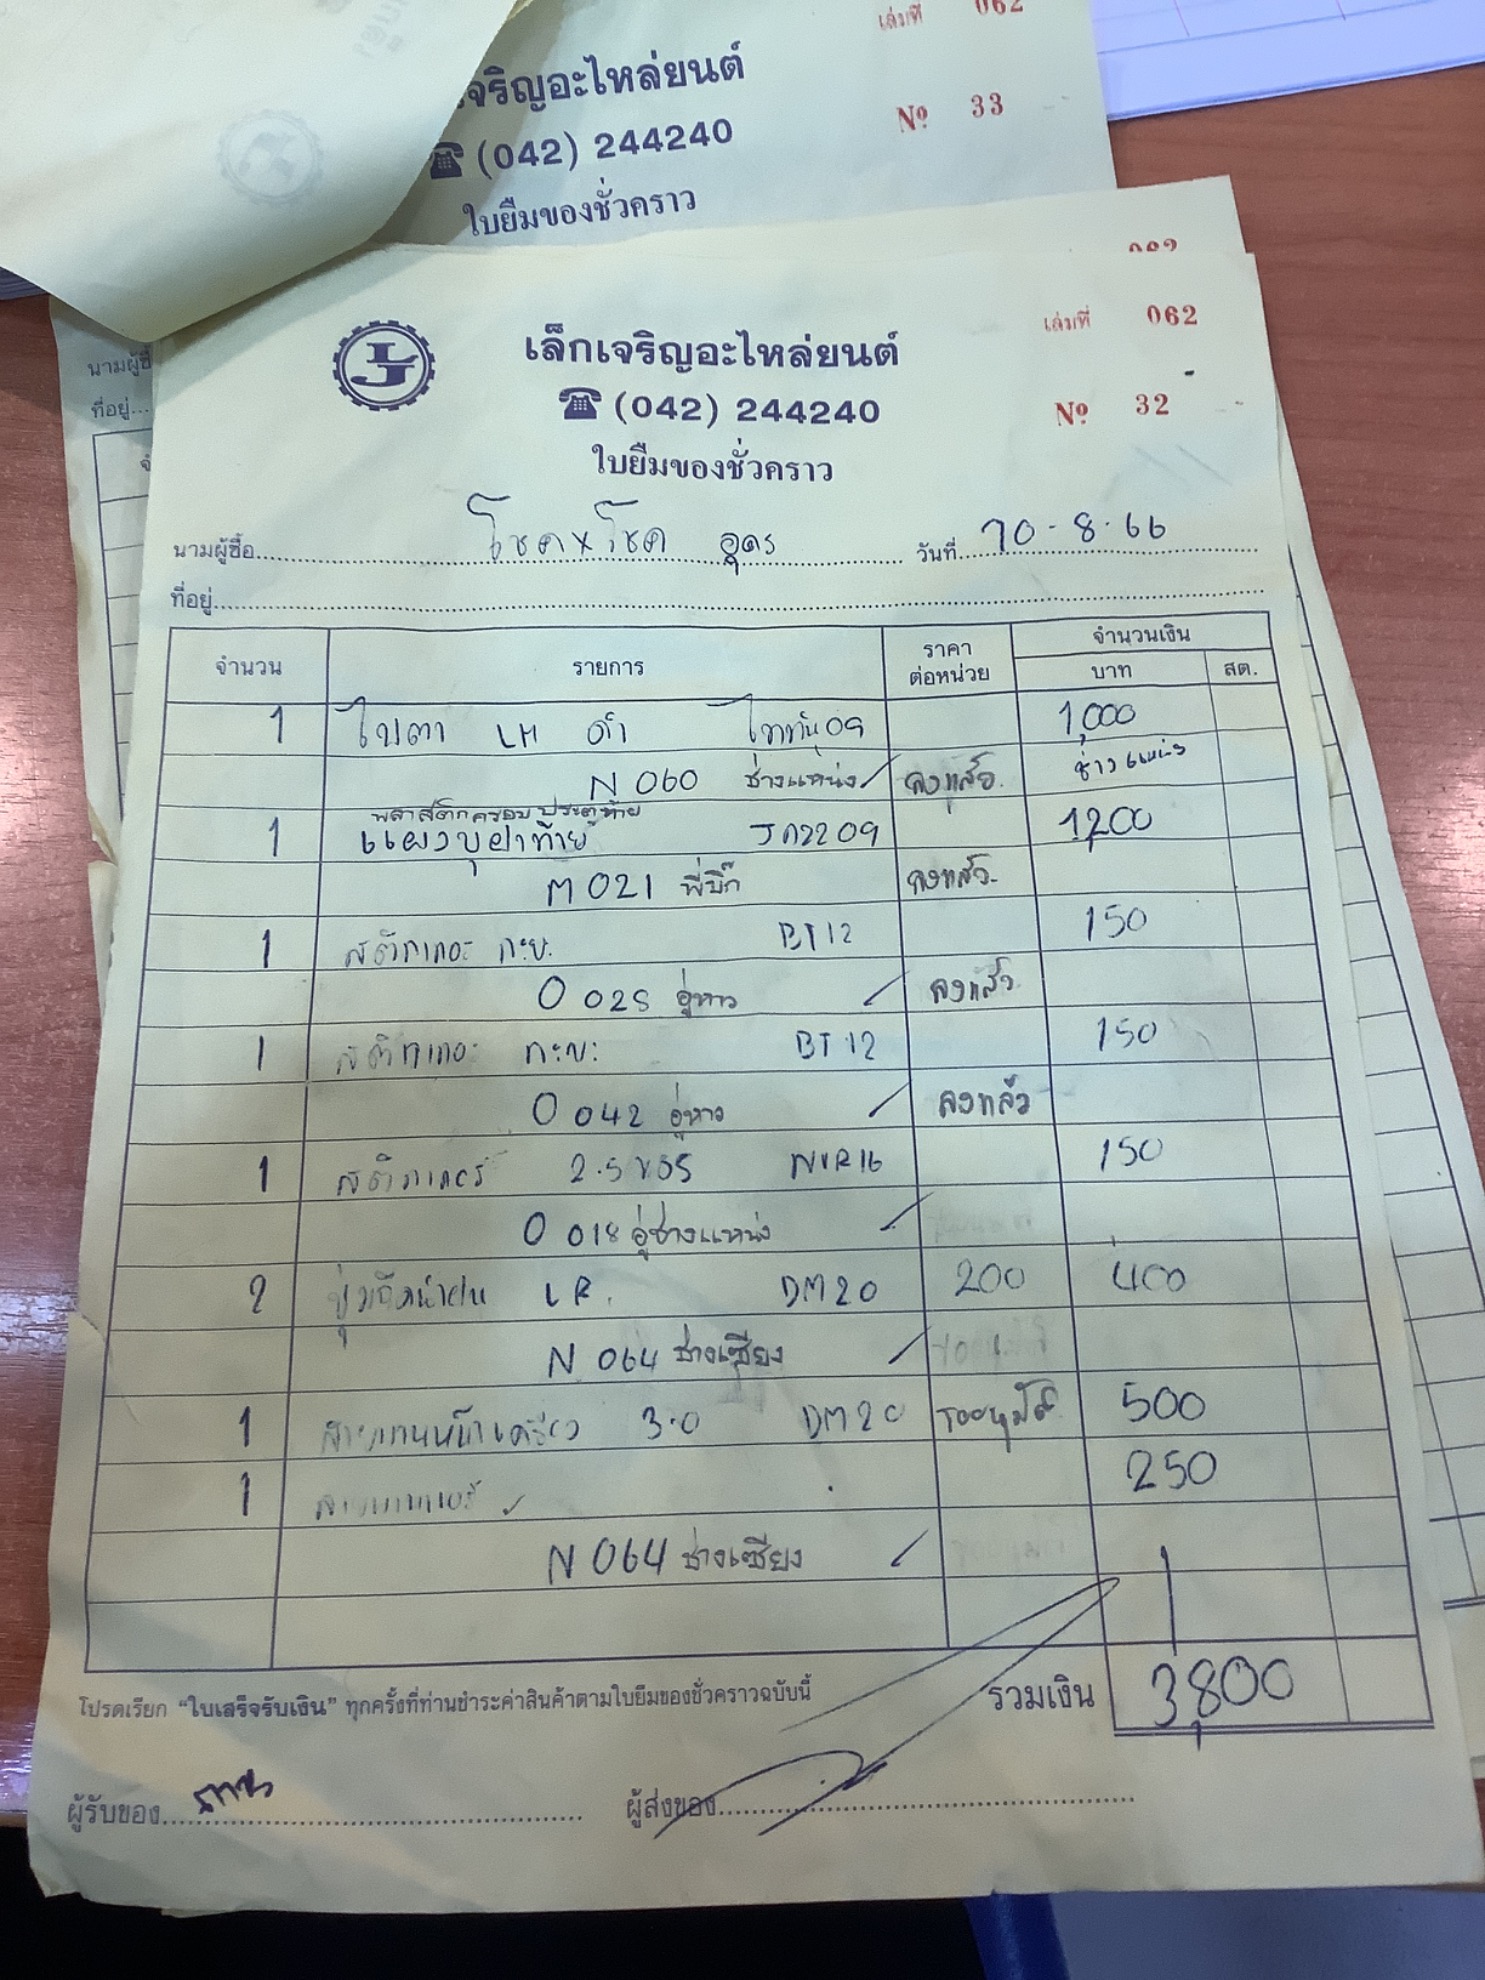 เล่มที่ 062
เจริญอะไหล่ยนต์
Nº 33
(042) 244240
ใบยืมของชั่วคราว
นามผู้ซื้อ
ที่อยู่
เล็กเจริญอะไหล่ยนต์
เล่มที่ 062
(042) 244240
Nº 32
ใบยืมของชั่วคราว
นามผู้ซื้อ โชค x โชค อุดร วันที่ 10-8-66
ที่อยู่
จำนวน รายการ ราคาต่อหน่วย จำนวนเงิน
บาท สต.
1 ไฟตา LH ดำ ไททัน09 1,000
N 060 ช่างแหน่ง ลงแล้ว ช่างแหน่ง
พลาสติกครอบประตูท้าย
1 แผงบุฝาท้าย 09 1,200
M 021 พี่บิ๊ก ลงแล้ว
1 สติกเกอะ กะบะ BT12 150
O 028 อู่หาว ลงแล้ว
1 สติกเกอะ กะบะ BT12 150
O 042 อู่หาว ลงแล้ว
1 สติกเกอร์ NVR16 150
O 018 อู่ช่างแหน่ง
2 ปุ่มฉีดน้ำฝน LR. DM20 200 400
N 064 ช่างเซียง
1 3.0 DM20 รออนุมัติ 500
1 250
N 064 ช่างเซียง
โปรดเรียก "ใบเสร็จรับเงิน" ทุกครั้งที่ท่านชำระค่าสินค้าตามใบยืมของชั่วคราวฉบับนี้ รวมเงิน 3,800
ผู้รับของ ผู้ส่งของ